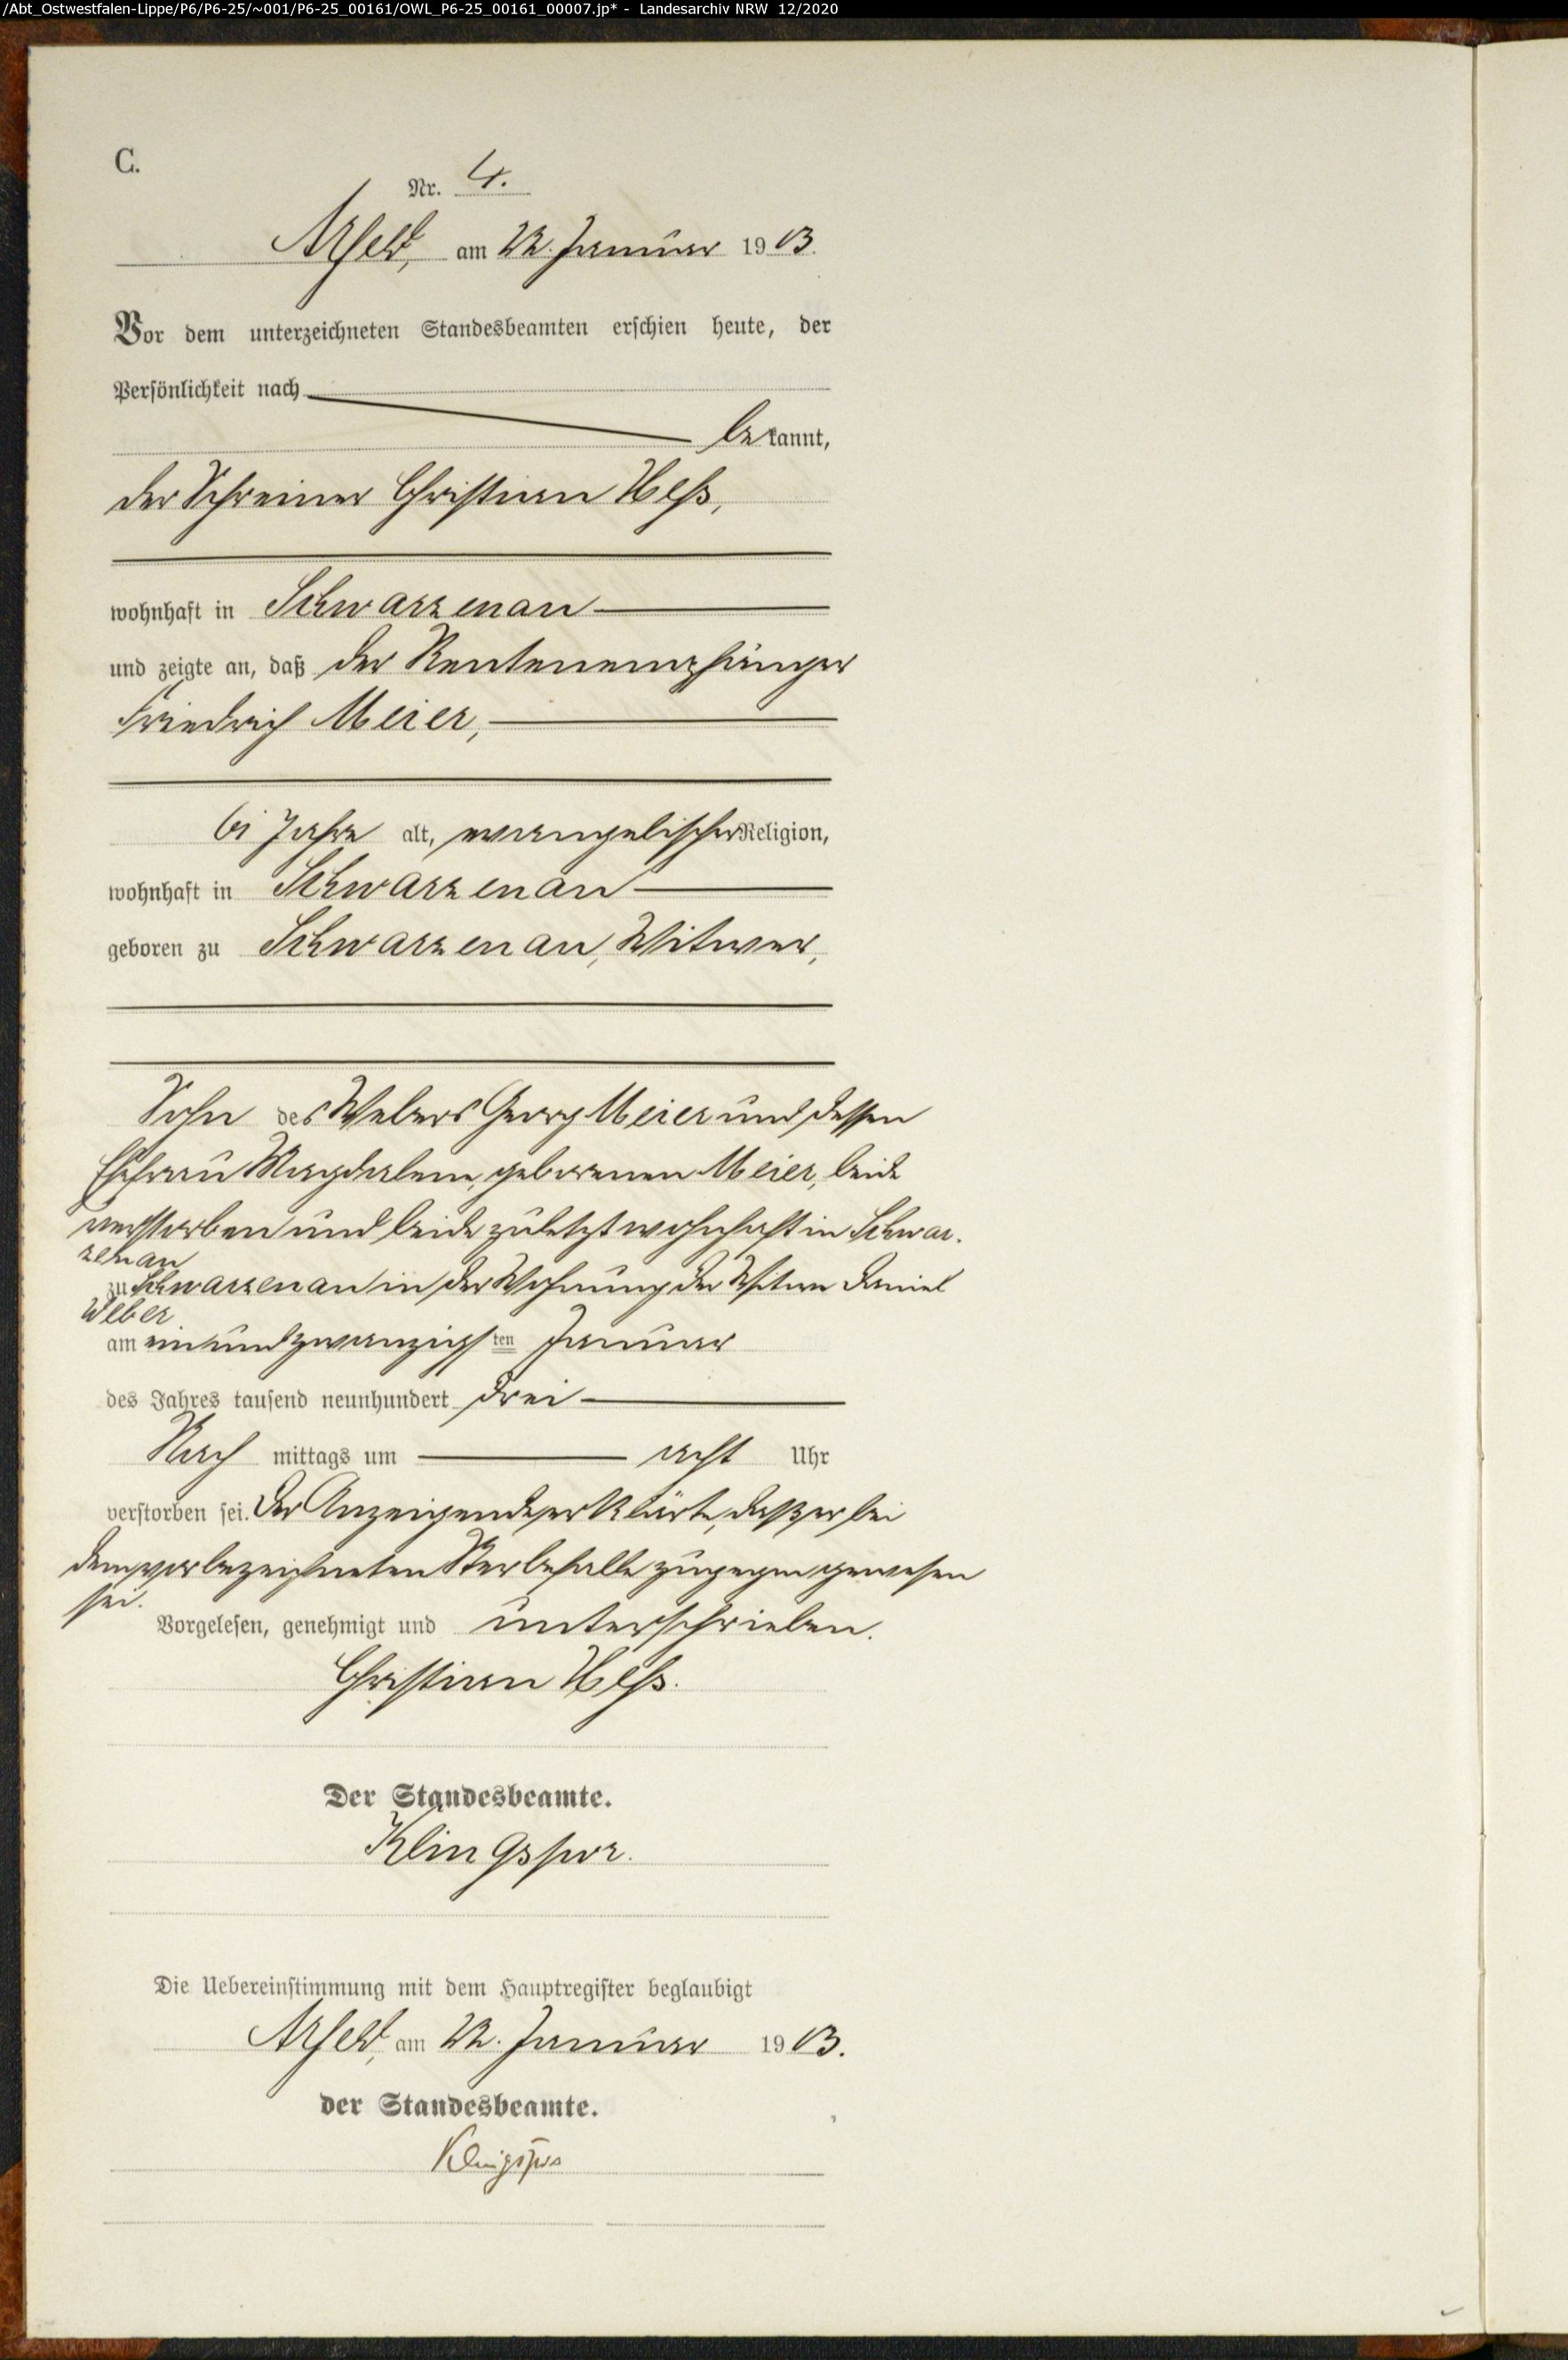 /Abt_Ostwestfalen-Lippe/P6/P6-25/~001/P6-25_00161/OWL_P6-25_00161_00007.jp* - Landesarchiv NRW 12/2020
C.
Nr. 4.
Arfeld, am 22. Januar 1903.
Vor dem unterzeichneten Standesbeamten erschien heute, der
Persönlichkeit nach
bekannt,
der Schreiner Christian Heß,
wohnhaft in Schwarzenau
und zeigte an, daß der Rentenempfänger
Friedrich Meier,
61 Jahre alt, evangelischer Religion,
wohnhaft in Schwarzenau
geboren zu Schwarzenau, Witwer,
Sohn des Webers Georg Meier und dessen
Ehefrau Magdalene, geborenen Meier, beide
verstorben und beide zuletzt wohnhaft in Schwar-
zenau
zu Schwarzenau in der Wohnung der Witwe Daniel
Weber
am einundzwanzigsten Januar
des Jahres tausend neunhundert drei
Nachmittags um acht Uhr
verstorben sei. Der Anzeigende erklärte, daß er bei
dem vorbezeichneten Sterbefalle zugegen gewesen
sei.
Vorgelesen, genehmigt und unterschrieben.
Christian Heß.
Der Standesbeamte.
Klingspor.
Die Uebereinstimmung mit dem Hauptregister beglaubigt
Arfeld, am 22. Januar 1903.
der Standesbeamte.
Klingspor